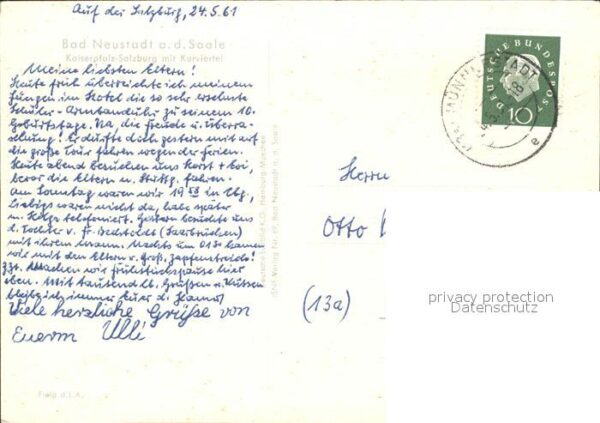 Auf der Salzburg, 24.5.61
Bad Neustadt a. d. Saale
Kaiserpfalz-Salzburg mit Kurviertel
Meine liebsten Eltern!
Heute früh überreichte ich meinem
Jungen im Hotel die so sehr ersehnte
Schüler-Armbanduhr zu seinem 10.
Geburtstage. Na die Freude u. Überra-
schung! Er dürfte dich gestern mit auf
die große Tour fahren wegen der Ferien.
Heute abend besuchen uns Horst + Loi,
bevor die Eltern n. Stuttg. fahren.
Am Sonntag waren wir in Wbg,
Liebigs waren nicht da, habe später
m. Helga telefoniert. Gestern besuchte uns
d. Tochter v. Fr. Bechtoldt (Saarbrücken)
mit ihrem Mann. Nachts um 0130 kamen
wir mit den Eltern v. Groß. Zapfenstreich!
Zzt. machen wir Frühstückspause hier
oben. Mit tausend lb. Grüßen u. Küssen
bleibe ich immer Euer d.
Viele herzliche Grüße von
Eurem Ulli
Freig. d. L. A.
DEUTSCHE BUNDESPOST
10
Herrn
Otto
(13a)
privacy protection
Datenschutz